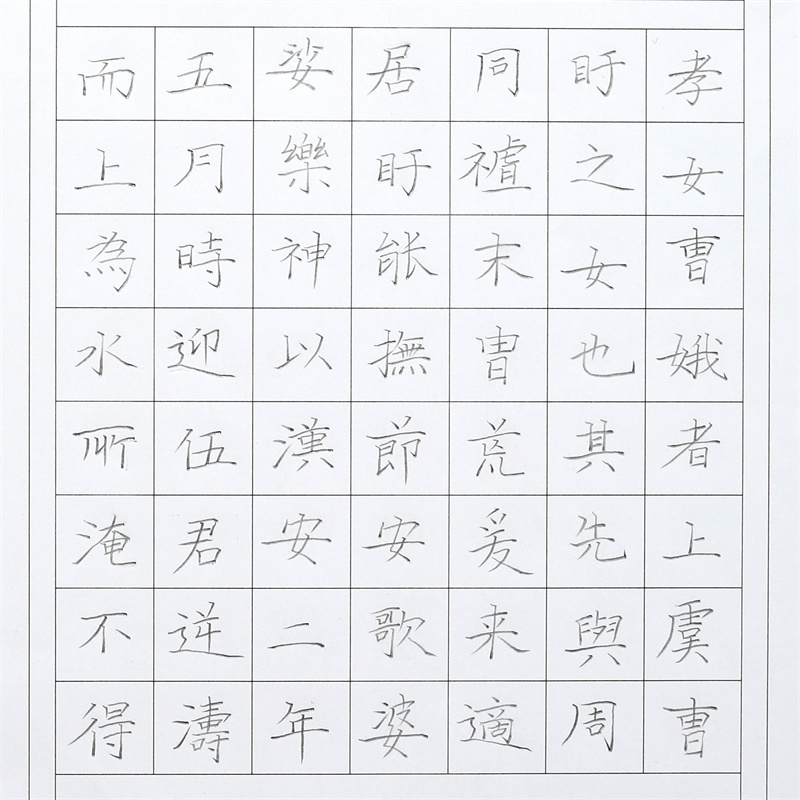 孝女曺娥者上虞曺
盱之女也其先與周
同禮末曺荒爰来適
居盱能撫節安歌婆
娑樂神以漢安二年
五月時迎伍君逆濤
而上為水所淹不得